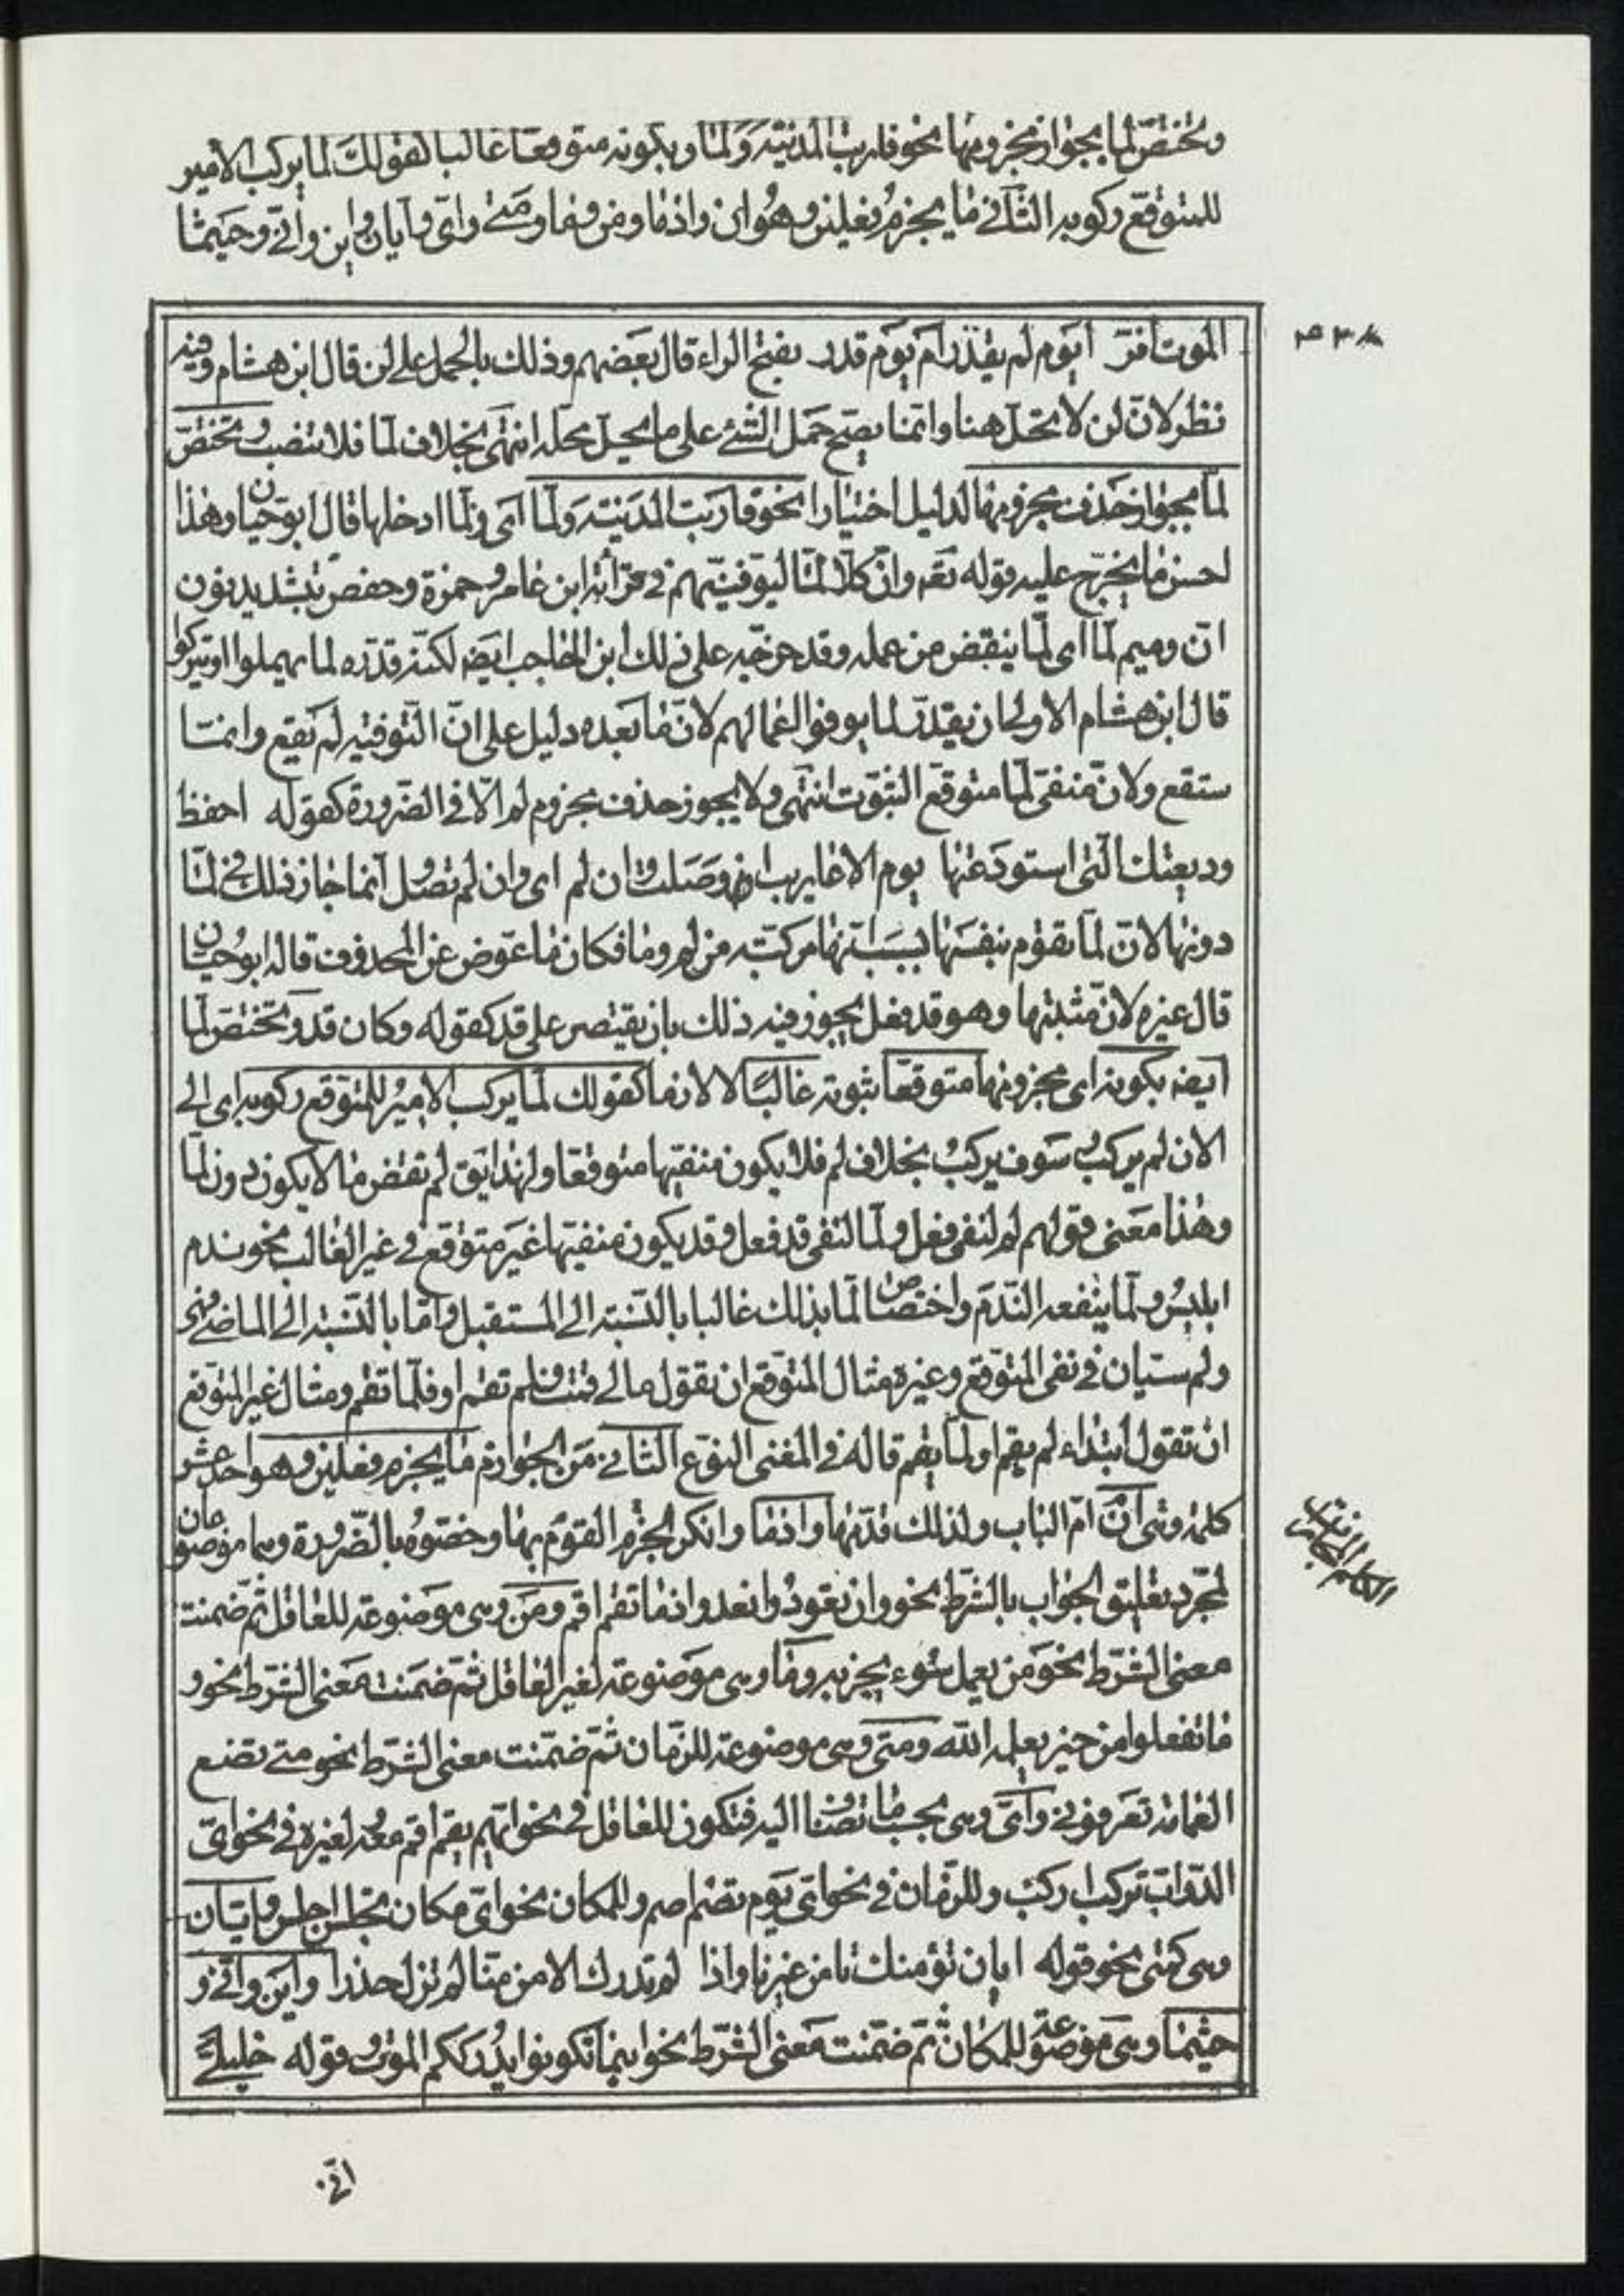 وتختص لما بجواز مجزومها نحو قاربت المدنية ولما وبكونه متوقعا غالبا كقولك لما يركب الامير
للمتوقع ركوبه الثاني ما يجزم فعلين وهو ان واذما ومن وما ومتى واى وايان واين وانى وحيثما
٤٣٨
الموت أفر أيوم لم يقدر أم يوم قدر بفتح الراء قال بعضهم وذلك بالحمل على لن قال ابن هشام وفيه
نظر لان لن لا تحل هنا وانما يصح حمل الشئ على ما يحل محله انتهى بخلاف لما فلا ينصب وتختص
لما بجواز حذف مجزومها لدليل اختيارا نحو قاربت المدينة ولما اى ولما ادخلها قال ابو حيان وهذا
احسن ما يخرج عليه قوله تعه وان كلا لما ليوفينهم في قرائة ابن عامر وحمزة وحفص بتشديد نون
ان وميم لما اى لما ينقض من عمله وقد خرجه على ذلك ابن الحاجب ايضه لكنه قدره لما يهملوا او يتركوا
قال ابن هشام الاولى ان يقدر لما يوفوا اعمالهم لان ما بعده دليل على ان التوفيه لم تقع وانما
ستقع ولان منفى لما متوقع الثبوت انتهى ولا يجوز حذف مجزوم لم الا في الضرورة كقوله احفظ
وديعتك التى استودعتها يوم الاعازب ان وصلت وان لم اى وان لم تصل وانما جاز ذلك في لما
دونها لان لما تقوم بنفسها بسبب انها مركبه من لم وما فكان ما عوض عن المحذوف قاله ابو حيان
قال غيره لان مثبتها وهو قد فعل يجوز فيه ذلك بان يقتصر على قد كقوله وكان قد وتختص لما
ايضه بكونه اى مجزومها متوقعا ثبوته غالبا لا لازما كقولك لما يركب الامير للمتوقع ركوبه اى الى
الان لم يركب وسوف يركب بخلاف لم فلا يكون منفيها متوقعا ولهذا يق لم تقض ما لا يكون دون لما
وهذا معنى قولهم لم لنفى فعل ولما لنفى قد فعل وقد يكون منفيها غير متوقع في غير الغالب نحو ندم
ابليس ولما ينفعه الندم واختصاص لما بذلك غالبا بالنسبة الى المستقبل واما بالنسبة الى الماضى فهى
ولم سيان في نفى المتوقع وغيره مثال المتوقع ان تقول مالى قمت ولم تقم او فلما تقم ومثال غير المتوقع
ان تقول ابتداء لم يقم او لما يقم قاله في المغنى النوع الثاني من الجوازم ما يجزم فعلين وهو احد عشر
كلمة وهى ان ام الباب ولذلك قدمها واذما وانكر الجزم القوم بها وخصوه بالضرورة وهما موضوعان
لمجرد تعليق الجواب بالشرط نحو وان تعودوا نعد واذما تقم اقم ومن وهى موضوعة للعاقل ثم ضمنت
معنى الشرط نحو من يعمل سوء يجز به وما وهى موضوعة لغير العاقل ثم ضمنت معنى الشرط نحو و
ما تفعلوا من خير يعلمه الله ومتى وهى موضوعة للزمان ثم ضمنت معنى الشرط نحو متى تضع
العمامة تعرفوني واى وهى بحسب ما تضاف اليه فتكون للعاقل في نحو ايهم يقم اقم معه لغيره في نحو اى
الدواب تركب اركب وللزمان في نحو اى يوم تصم اصم وللمكان نحو اى مكان تجلس اجلس وايان
وهى كمتى نحو قوله ايان نؤمنك تامن غيرنا واذا لم تدرك الامن منا لم تزل حذرا واين وانى و
حيثما وهى موضوعة للمكان ثم ضمنت معنى الشرط نحو اينما تكونوا يدرككم الموت وقوله خليلى
انى